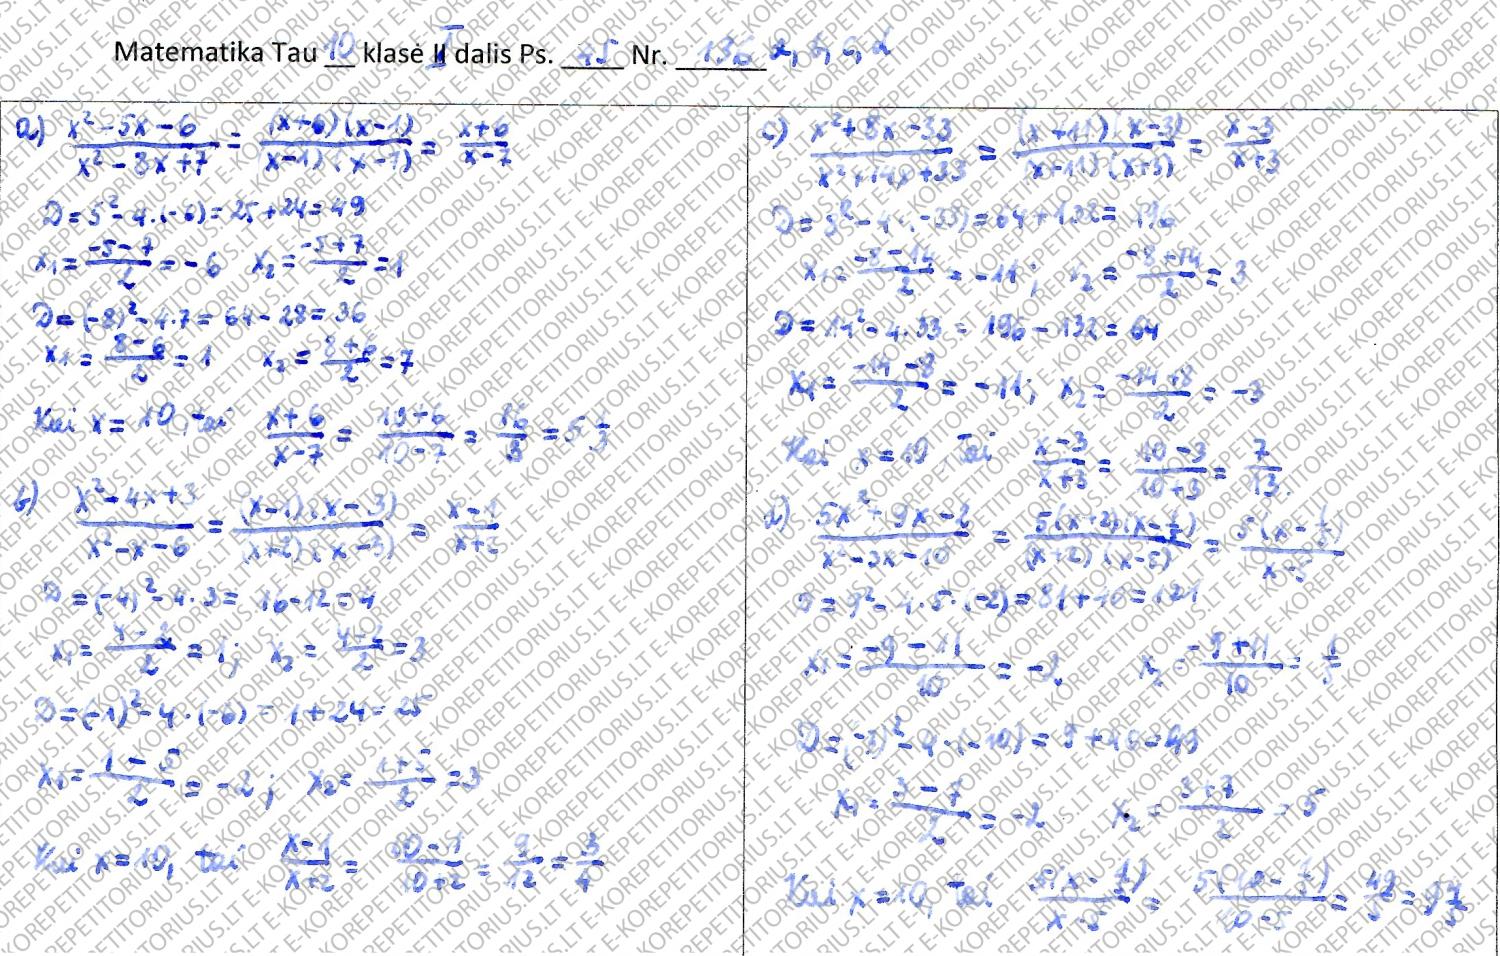 Matematika Tau 10 klasė I dalis Ps. 45 Nr. 136 a, b, c, d
a) (x² - 5x - 6)/(x² - 8x + 7) = ((x+6)(x-1))/((x-1)(x-7)) = (x+6)/(x-7)
D = 5² - 4·(-6) = 25 + 24 = 49
x₁ = (-5-7)/2 = -6 x₂ = (-5+7)/2 = 1
D = (-8)² - 4·7 = 64 - 28 = 36
x₁ = (8-6)/2 = 1 x₂ = (8+6)/2 = 7
Kai x = 10, tai (x+6)/(x-7) = (10+6)/(10-7) = 16/3 = 5 1/3
b) (x² - 4x + 3)/(x² - x - 6) = ((x-1)(x-3))/((x+2)(x-3)) = (x-1)/(x+2)
D = (-4)² - 4·3 = 16 - 12 = 4
x₁ = (4-2)/2 = 1; x₂ = (4+2)/2 = 3
D = (-1)² - 4·(-6) = 1 + 24 = 25
x₁ = (1-5)/2 = -2; x₂ = (1+5)/2 = 3
Kai x = 10, tai (x-1)/(x+2) = (10-1)/(10+2) = 9/12 = 3/4
c) (x² + 8x - 33)/(x² + 14x + 33) = ((x+11)(x-3))/((x+11)(x+3)) = (x-3)/(x+3)
D = 8² - 4·(-33) = 64 + 132 = 196
x₁ = (-8-14)/2 = -11; x₂ = (-8+14)/2 = 3
D = 14² - 4·33 = 196 - 132 = 64
x₁ = (-14-8)/2 = -11; x₂ = (-14+8)/2 = -3
Kai x = 10, tai (x-3)/(x+3) = (10-3)/(10+3) = 7/13.
d) (5x² + 9x - 2)/(x² - 3x - 10) = (5(x+2)(x-1/5))/((x+2)(x-5)) = (5(x-1/5))/(x-5)
D = 9² - 4·5·(-2) = 81 + 40 = 121
x₁ = (-9-11)/10 = -2 x₂ = (-9+11)/10 = 1/5
D = (-3)² - 4·(-10) = 9 + 40 = 49
x₁ = (3-7)/2 = -2 x₂ = (3+7)/2 = 5
Kai x = 10, tai (5(x-1/5))/(x-5) = (5(10-1/5))/(10-5) = 49/5 = 9 4/5
E-KOREPETITORIUS.LT